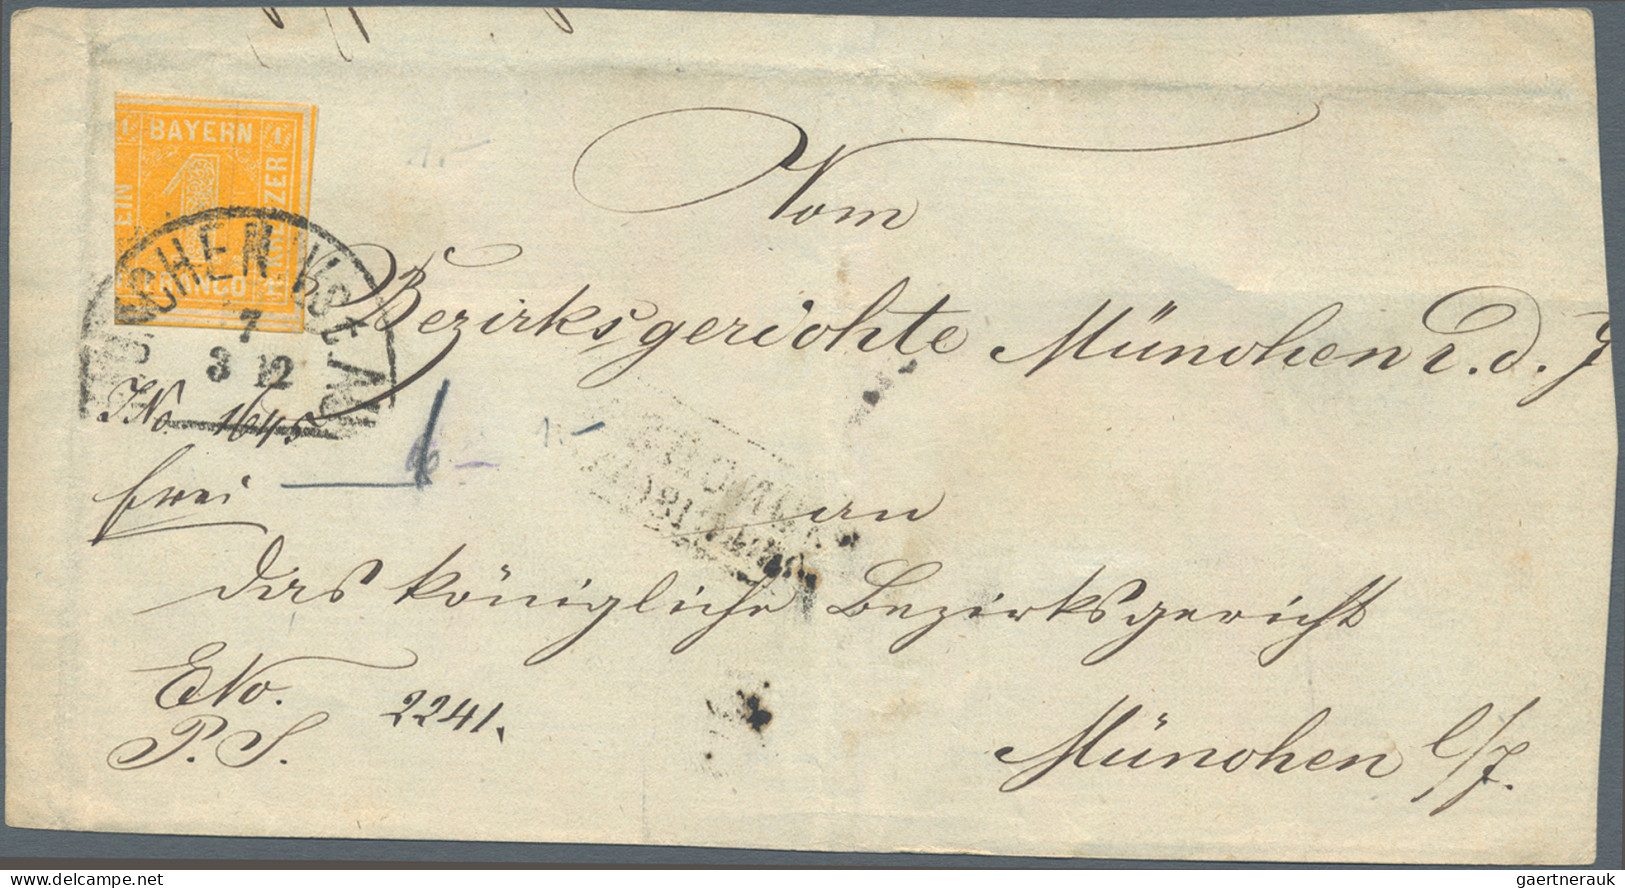 1 BAYERN 1
EIN
1
KREUZER
FRANCO 1
MÜNCHEN
7
3 12
Vom
Bezirksgerichte München r. d. J
JNo. 1645
frei
an
das königliche Bezirksgericht
ENo. 2241.
P. S.
München l/J.
www.delcampe.net
gaertnerauk